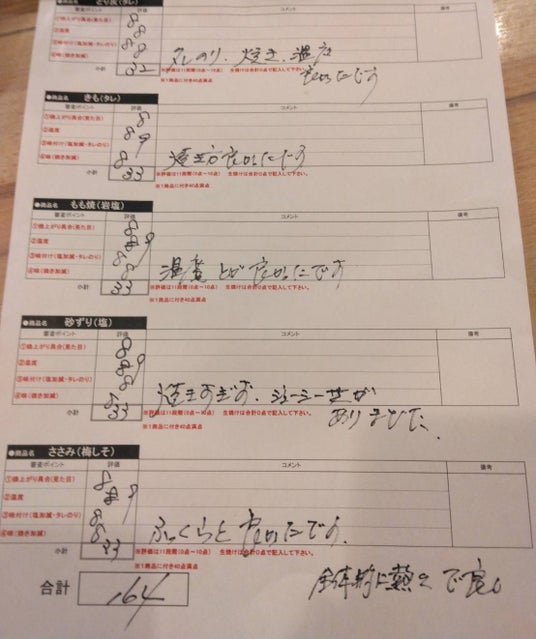 とり皮(タレ)
①焼上がり具合(見た目) 8
②温度 8
③味付け(塩加減・タレのり) 8
④味(焼き加減) 8
小計 32
コメント
備考
タレのり、焼き、温度
良かったです
※評価は11段階(0点~10点) 生焼けは合計0点で記入して下さい。
※1商品に付き40点満点
●商品名 きも(タレ)
審査ポイント 評価 コメント 備考
①焼上がり具合(見た目) 8
②温度 8
③味付け(塩加減・タレのり) 9
④味(焼き加減) 8
小計 33
焼き方良かったです
※評価は11段階(0点~10点) 生焼けは合計0点で記入して下さい。
※1商品に付き40点満点
●商品名 もも焼(岩塩)
審査ポイント 評価 コメント 備考
①焼上がり具合(見た目) 8
②温度 9
③味付け(塩加減・タレのり) 8
④味(焼き加減) 8
小計 33
温度 とが良かったです
※評価は11段階(0点~10点) 生焼けは合計0点で記入して下さい。
※1商品に付き40点満点
●商品名 砂ずり(塩)
審査ポイント 評価 コメント 備考
①焼上がり具合(見た目) 8
②温度 9
③味付け(塩加減・タレのり) 8
④味(焼き加減) 8
小計 33
焼きすぎず、ジューシーさが
ありました、
※評価は11段階(0点~10点) 生焼けは合計0点で記入して下さい。
※1商品に付き40点満点
●商品名 ささみ(梅しそ)
審査ポイント 評価 コメント 備考
①焼上がり具合(見た目) 8
②温度 9
③味付け(塩加減・タレのり) 8
④味(焼き加減) 8
小計 33
ふっくらと良かったです。
※評価は11段階(0点~10点) 生焼けは合計0点で記入して下さい。
※1商品に付き40点満点
合計 164
全体的に